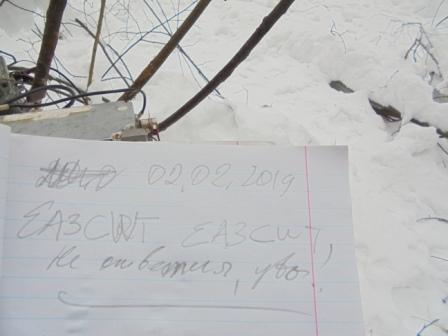 02,02,2019
EA3CWT EA3CWT,
Не ответил, увы!